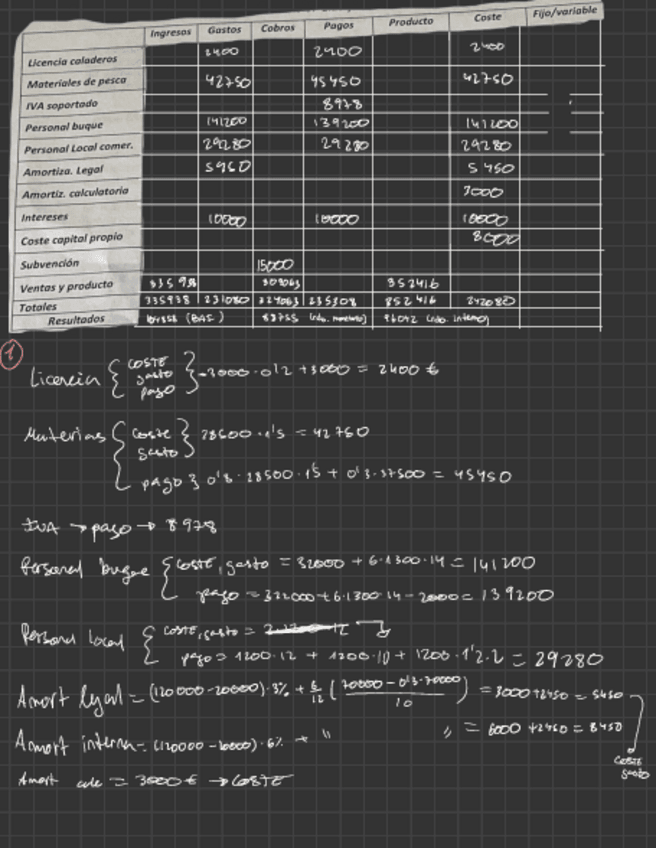 Ingresos Gastos Cobros Pagos Producto Coste Fijo/variable
Licencia caladeros 2400 2400 2400
Materiales de pesca 42750 45450 42750
IVA soportado 8978
Personal buque 141200 139200 141200
Personal Local comer. 29280 29280 29280
Amortiza. Legal 5450 5450
Amortiz. calculatoria 3000
Intereses 10000 10000 10000
Coste capital propio 8000
Subvención 15000
Ventas y producto 335938 309063 352416
Totales 335938 231080 324063 235308 352416 242080
Resultados (BAS) 88755
1
Licencia { coste gasto pago } -3000·0'2 + 3000 = 2400 €
Materias { coste gasto } 28500·1'5 = 42750
pago } 0'8·28500·1'5 + 0'3·37500 = 45450
IVA → pago → 8978
Personal buque { coste, gasto = 32000 + 6·1300·14 = 141200
pago = 32000 + 6·1300·14 - 2000 = 139200
Personal local { coste, gasto =
pago = 1200·12 + 1200·10 + 1200·1'2·2 = 29280
Amort legal = (120000-20000)·3% + 6/12 (70000 - 0'3·70000 / 10) = 3000 + 2450 = 5450
Amort interna = (120000 - 20000)·6% + " " = 6000 + 2450 = 8450
Coste
gasto
Amort calc = 3000 € → COSTE